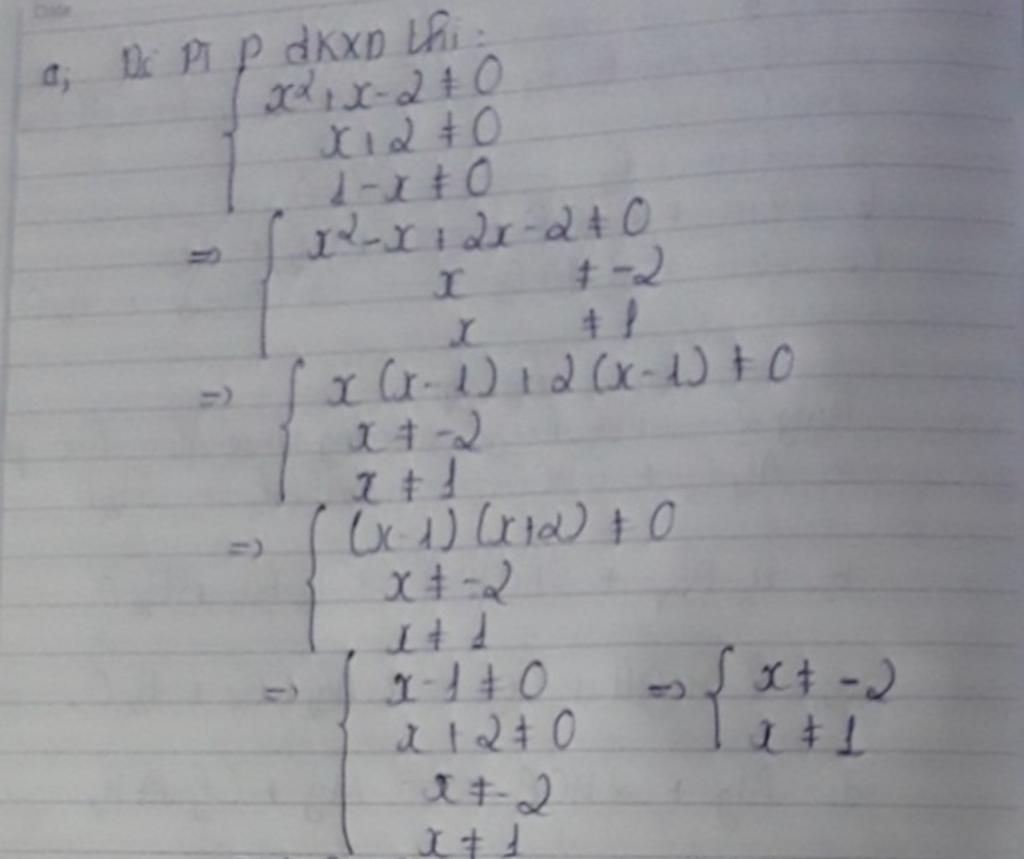 Date
a, Để PT P ĐKXĐ khi:
{ x² + x - 2 ≠ 0
x + 2 ≠ 0
1 - x ≠ 0
=> { x² - x + 2x - 2 ≠ 0
x ≠ -2
x ≠ 1
=> { x (x - 1) + 2 (x - 1) ≠ 0
x ≠ -2
x ≠ 1
=> { (x - 1) (x + 2) ≠ 0
x ≠ -2
x ≠ 1
=> { x - 1 ≠ 0 => { x ≠ -2
x + 2 ≠ 0 x ≠ 1
x ≠ -2
x ≠ 1